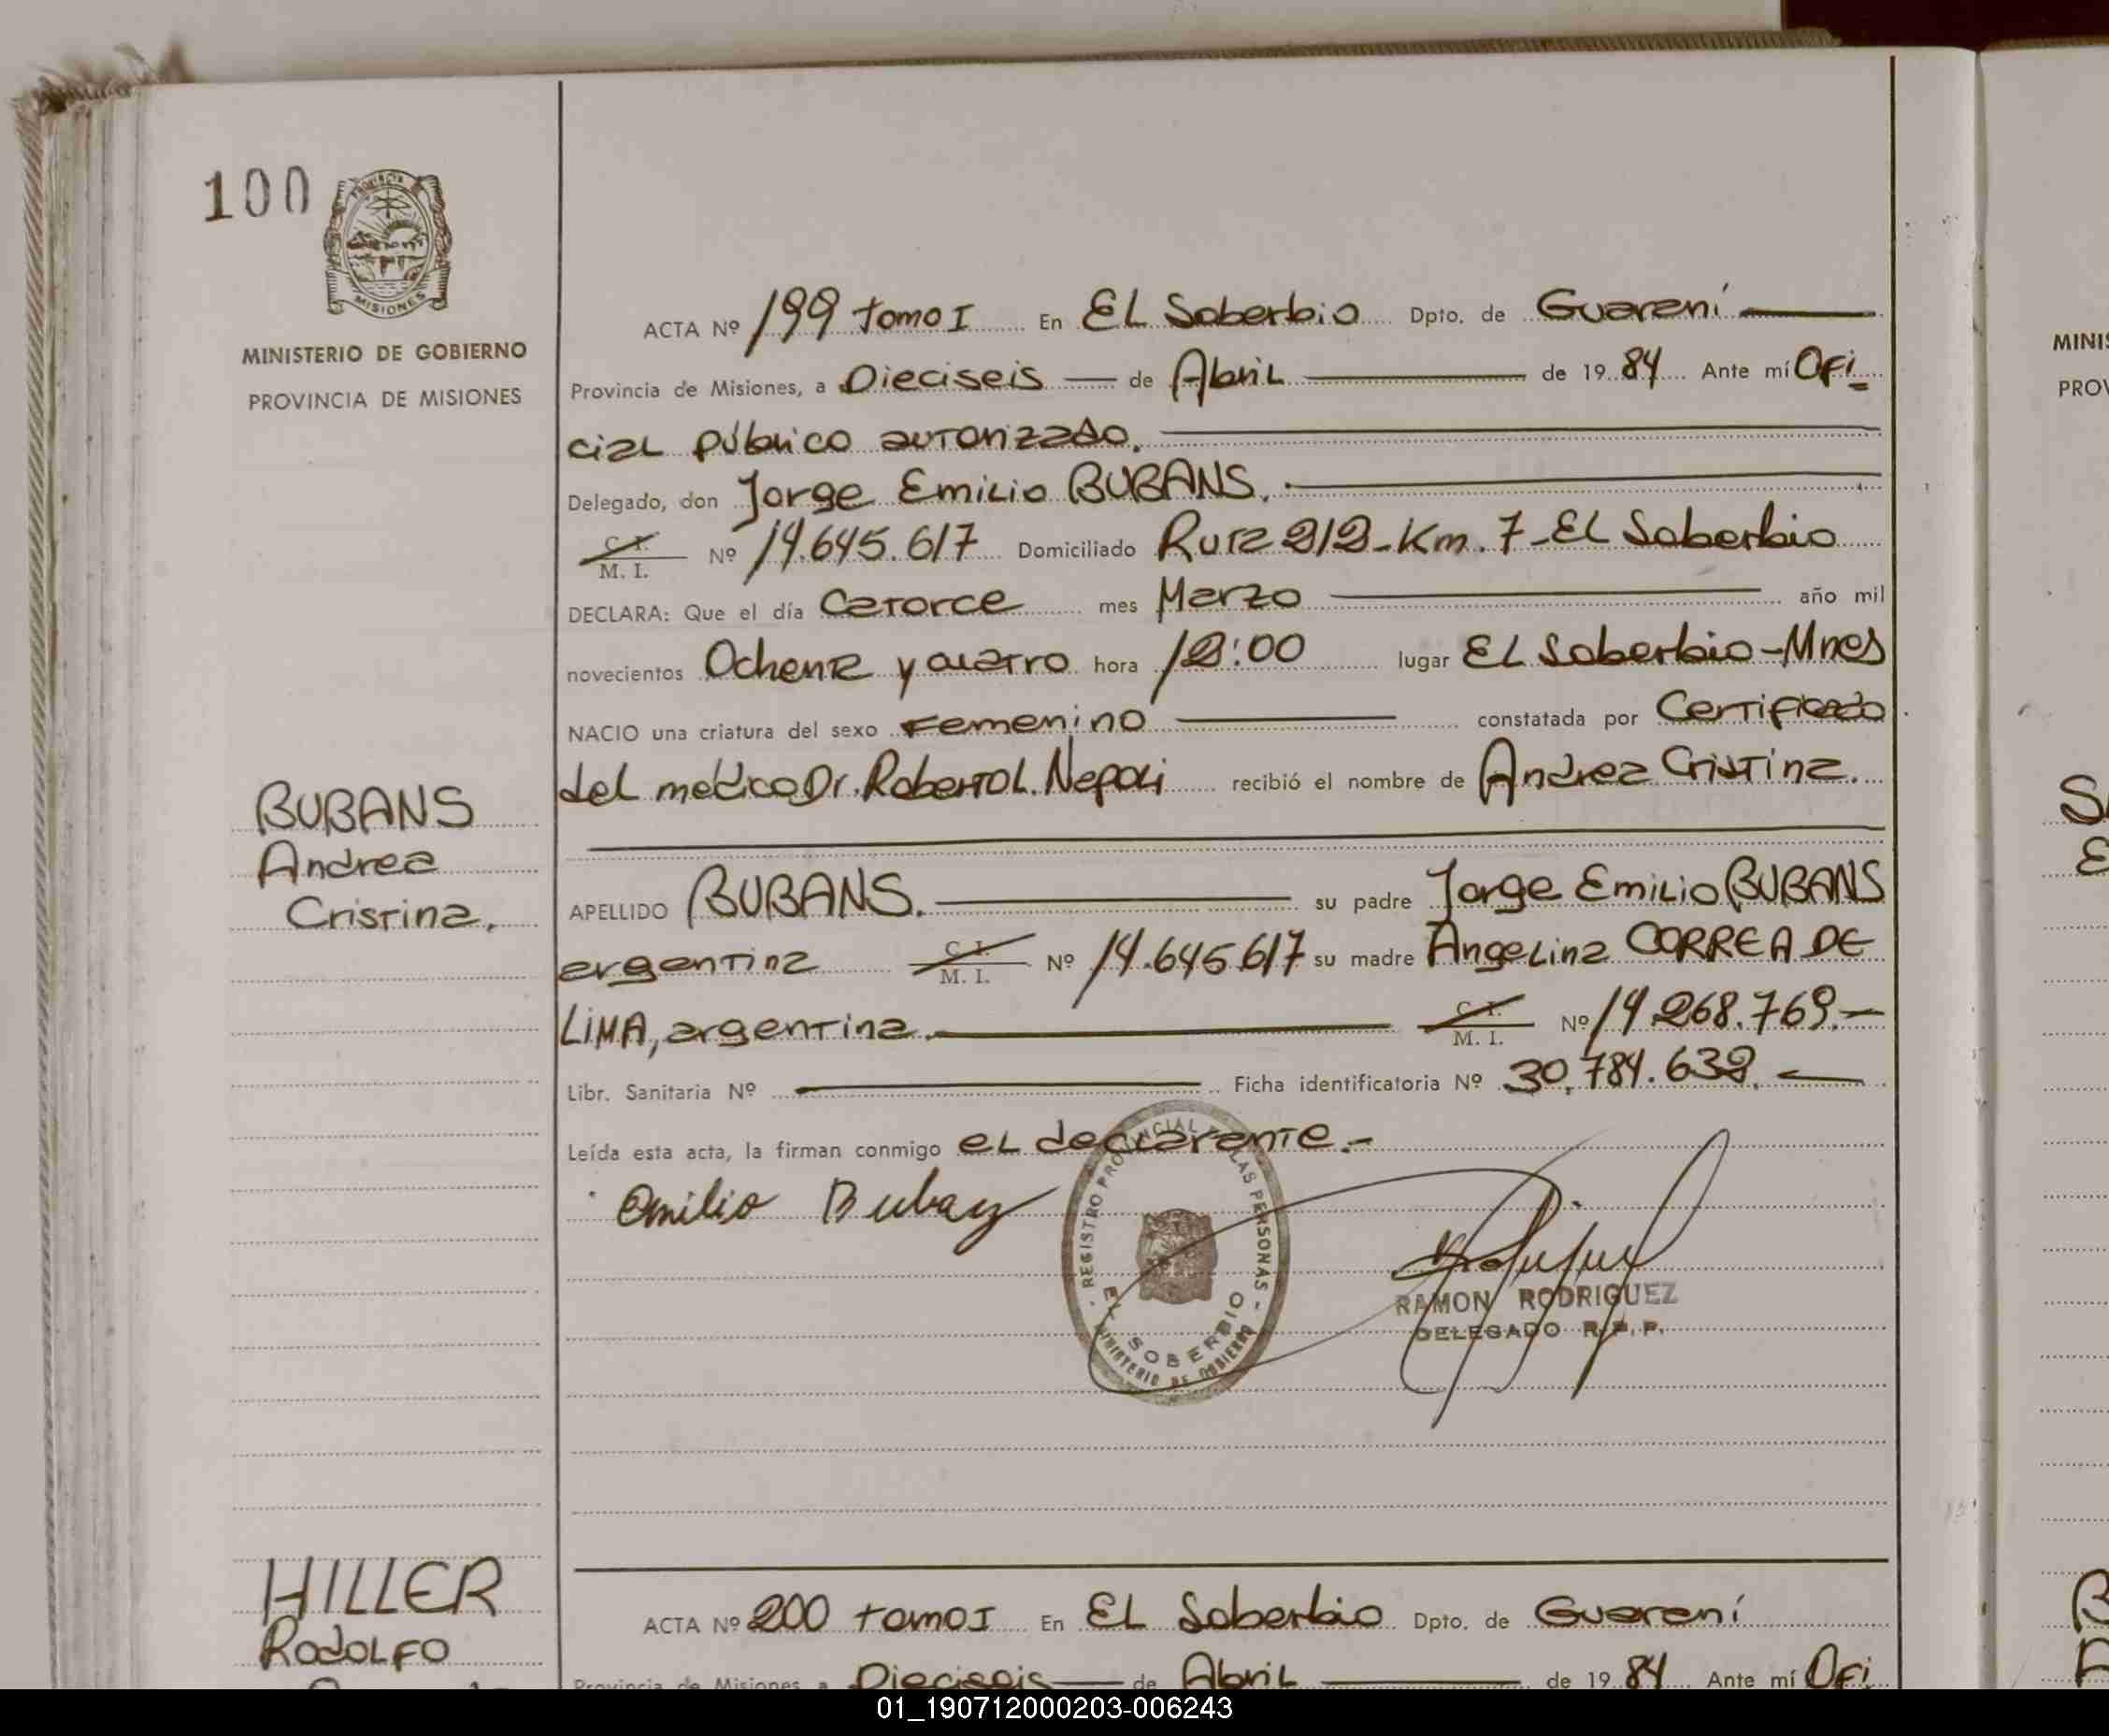 100
PROVINCIA
MISIONES
MINISTERIO DE GOBIERNO
PROVINCIA DE MISIONES
ACTA Nº 199 tomo I En EL Soberbio Dpto. de Guaraní
Provincia de Misiones, a Dieciseis de Abril de 19 84 Ante mí Ofi
cial público autorizado.
Delegado, don Jorge Emilio BUBANS.
C. I.
M. I. Nº 14.645.617 Domiciliado Ruta 212-Km. 7-El Soberbio
DECLARA: Que el día Catorce mes Marzo año mil
novecientos Ochenta y cuatro hora 12:00 lugar EL Soberbio-Mnes
NACIO una criatura del sexo Femenino constatada por Certificado
del medico Dr. Roberto L. Napoli recibió el nombre de Andrea Cristina.
BUBANS
Andrea
Cristina,
APELLIDO BUBANS. su padre Jorge Emilio BUBANS
argentina C. I. M. I. Nº 14.645.617 su madre Angelina CORREA DE
LIMA, argentina. C. I. M. I. Nº 14.268.769.-
Libr. Sanitaria Nº Ficha identificatoria Nº 30.784.632.
Leída esta acta, la firman conmigo el declarante.-
Emilio Bubans
REGISTRO PROVINCIAL LAS PERSONAS
EL SOBERBIO
MINISTERIO DE GOBIERNO
RAMON RODRIGUEZ
DELEGADO R.P.P.
HILLER
Rodolfo
ACTA Nº 200 tomo I En EL Soberbio Dpto. de Guaraní
Provincia de Misiones a Dieciseis de Abril de 19 84 Ante mí Ofi
MINIS
PROV
01_190712000203-006243